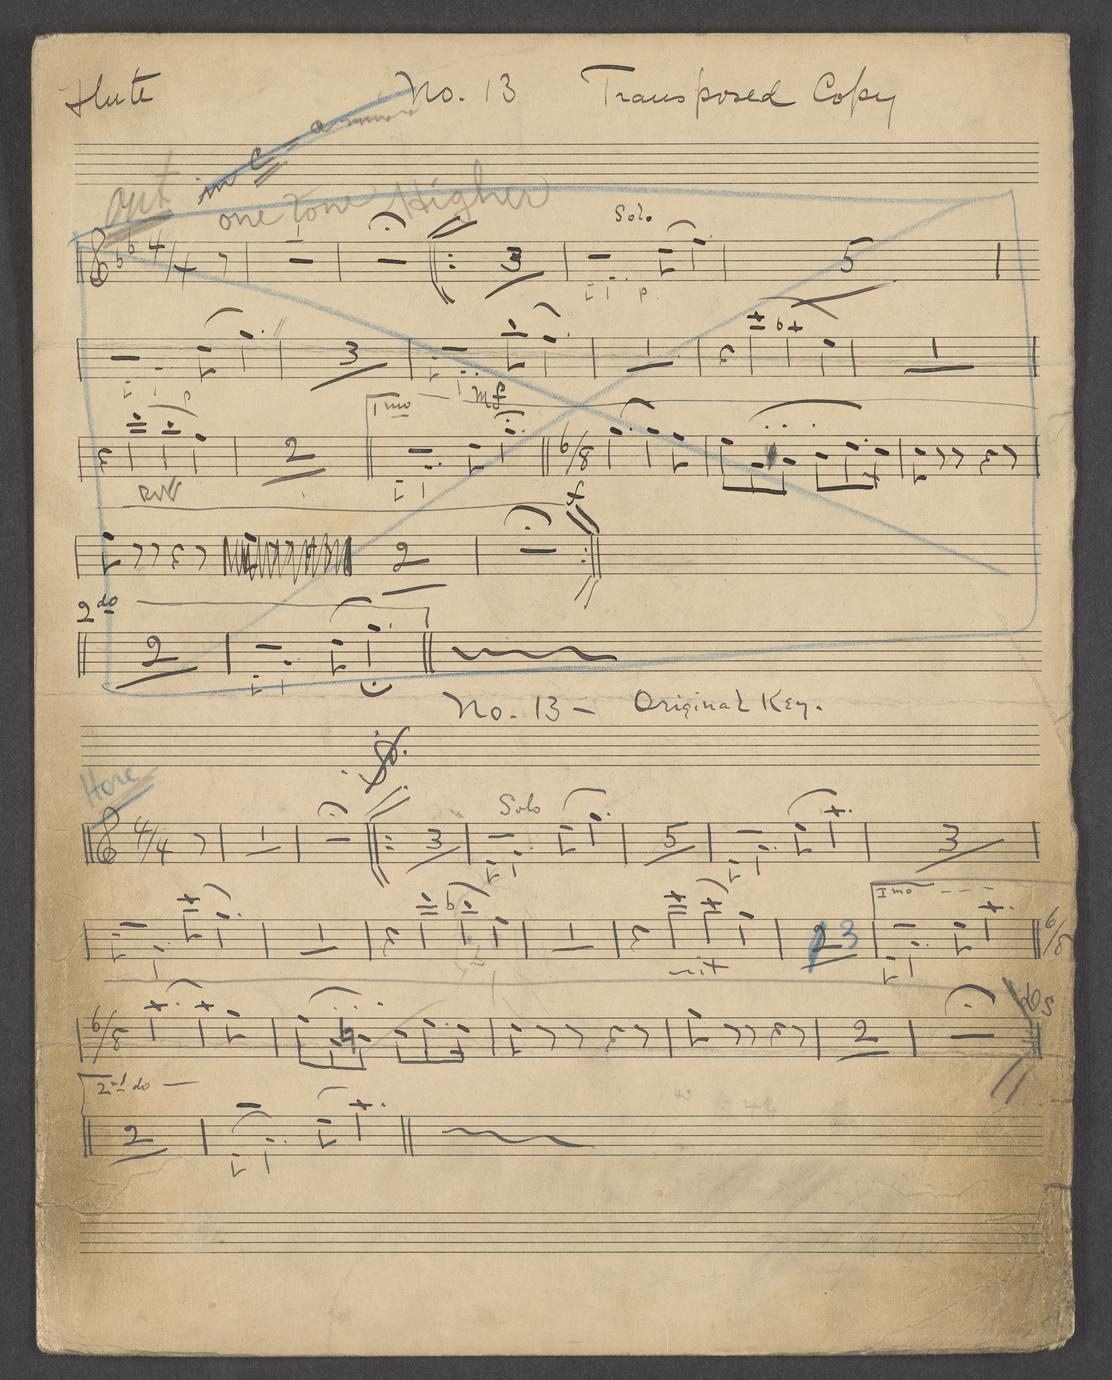 Flute No. 13 Transposed Copy
in C - a minor
out one tone Higher
Solo
4/4 3 5
p
3
p mf
1mo
2 6/8
Rit f
2
2do
2
No. 13 - Original Key.
Here
Solo
4/4 3 5 3
1mo
3 6/8
rit
6/8 2
2nd do
2